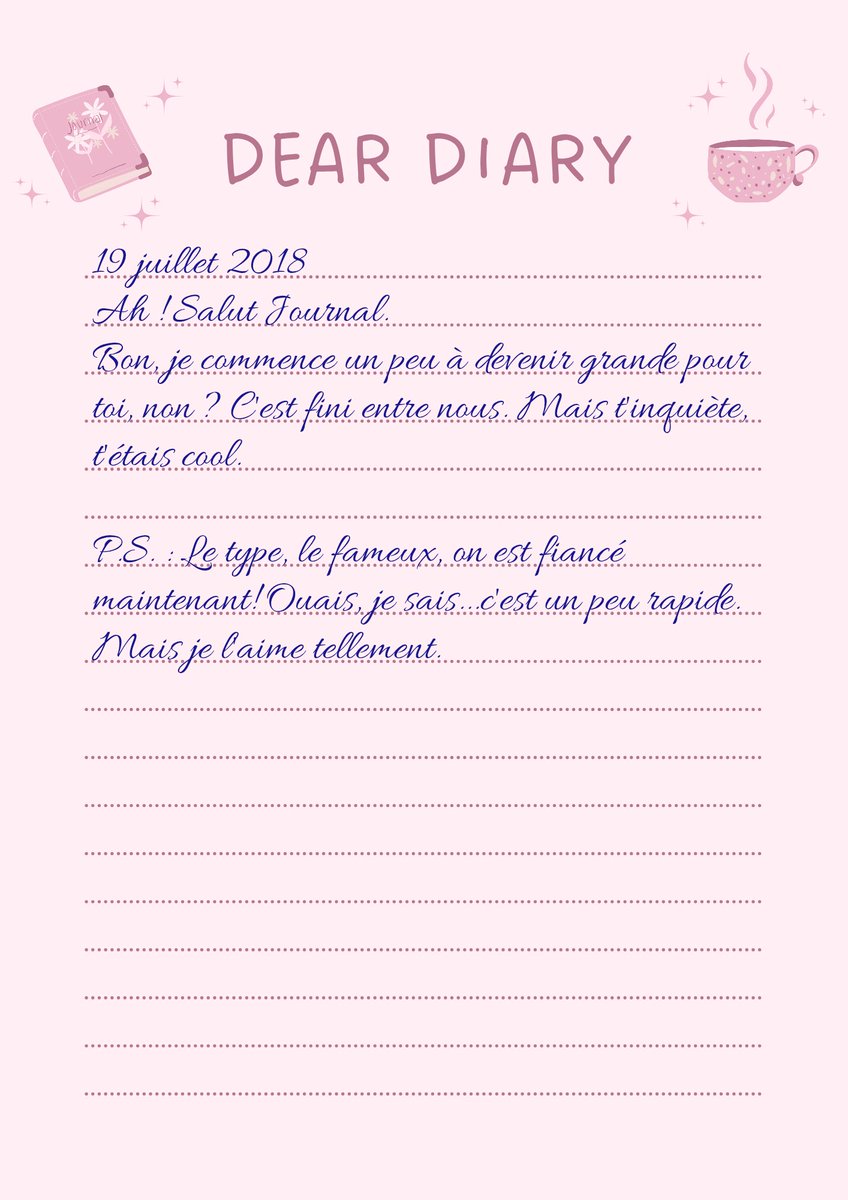 Journal
DEAR DIARY
19 juillet 2018
Ah ! Salut Journal.
Bon, je commence un peu à devenir grande pour
toi, non ? C'est fini entre nous. Mais t'inquiète,
t'étais cool.
P.S. : Le type, le fameux, on est fiancé
maintenant! Ouais, je sais...c'est un peu rapide.
Mais je l'aime tellement.